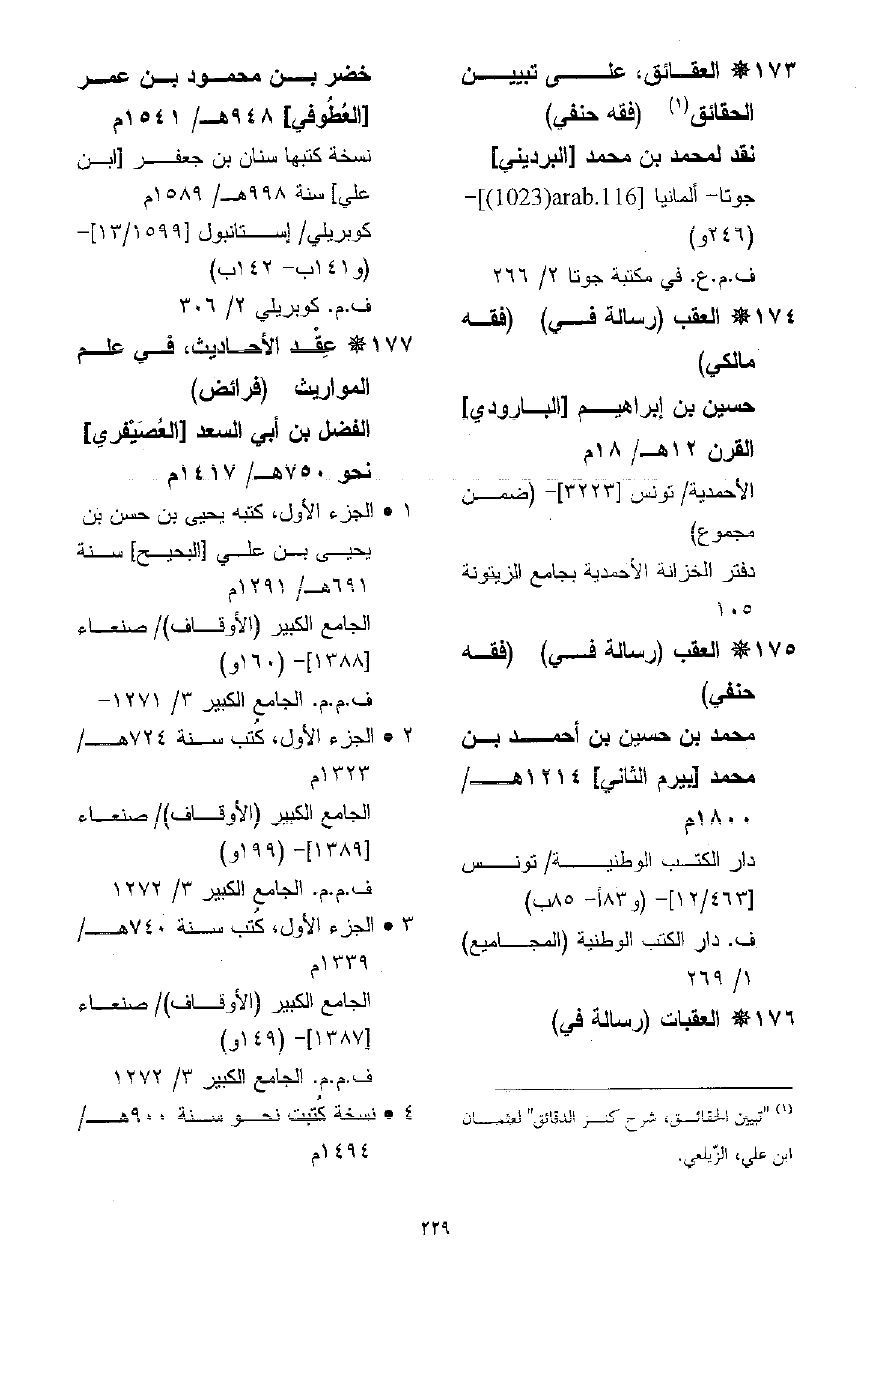 ١٧٣ ❋ العقائق، على تبيين
الحقائق(١) (فقه حنفي)
نقد لمحمد بن محمد [البرديني]
جوتا- ألمانيا [arab.116(1023)]-
(٢٤٦و)
ف.م.ع. في مكتبة جوتا ٢/ ٢٦٦
١٧٤ ❋ العقب (رسالة في) (فقه
مالكي)
حسين بن إبراهيم [البارودي]
القرن ١٢هـ/ ١٨م
الأحمدية/ تونس [٣٢٢٣]- (ضمن
مجموع)
دفتر الخزانة الأحمدية بجامع الزيتونة
١٠٥
١٧٥ ❋ العقب (رسالة في) (فقه
حنفي)
محمد بن حسين بن أحمد بن
محمد [بيرم الثاني] ١٢١٤هـ/
١٨٠٠م
دار الكتب الوطنية/ تونس
[١٢/٤٦٣]- (و٨٣أ- ٨٥ب)
ف. دار الكتب الوطنية (المجاميع)
١/ ٢٦٩
١٧٦ ❋ العقبات (رسالة في)
(١) "تبيين الحقائق، شرح كنز الدقائق" لعثمان
ابن علي، الزّيلعي.
خضر بن محمود بن عمر
[العُطُوفي] ٩٤٨هـ/ ١٥٤١م
نسخة كتبها سنان بن جعفر [ابن
علي] سنة ٩٩٨هـ/ ١٥٨٩م
كوبريلي/ إستانبول [١٣/١٥٩٩]-
(و١٤١ب- ١٤٢ب)
ف.م. كوبريلي ٢/ ٣٠٦
١٧٧ ❋ عِقْد الأحاديث، في علم
المواريث (فرائض)
الفضل بن أبي السعد [العُصَيْفري]
نحو ٧٥٠هـ/ ١٤١٧م
١ • الجزء الأول، كتبه يحيى بن حسن بن
يحيى بن علي [البحيح] سنة
٦٩١هـ/ ١٢٩١م
الجامع الكبير (الأوقاف)/ صنعاء
[١٣٨٨]- (١٦٠و)
ف.م.م. الجامع الكبير ٣/ ١٢٧١-
٢ • الجزء الأول، كُتب سنة ٧٢٤هـ/
١٣٢٣م
الجامع الكبير (الأوقاف)/ صنعاء
[١٣٨٩]- (١٩٩و)
ف.م.م. الجامع الكبير ٣/ ١٢٧٢
٣ • الجزء الأول، كُتب سنة ٧٤٠هـ/
١٣٣٩م
الجامع الكبير (الأوقاف)/ صنعاء
[١٣٨٧]- (١٤٩و)
ف.م.م. الجامع الكبير ٣/ ١٢٧٢
٤ • نسخة كُتبت نحو سنة ٩٠٠هـ/
١٤٩٤م
٢٢٩